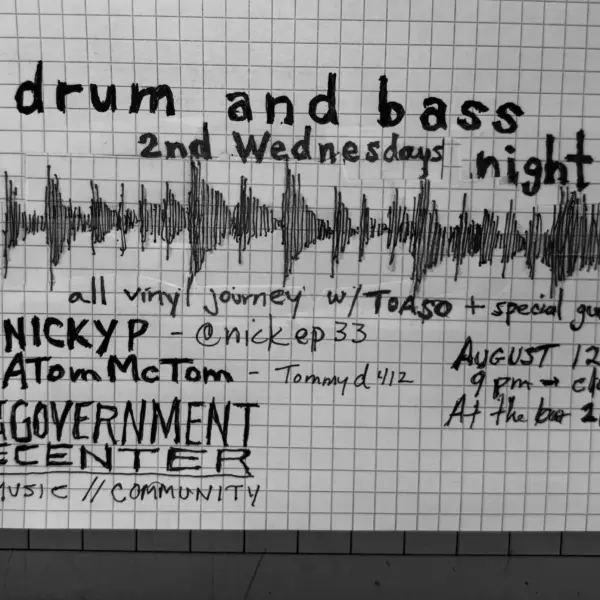 drum and bass
2nd Wednesdays
night
all vinyl journey w/ TOASO + special gu
NICKY P - @nickep33
ATom McTom - Tommyd412
AUGUST 12
9 pm → clo
At the bar 2
GOVERNMENT
CENTER
MUSIC // COMMUNITY